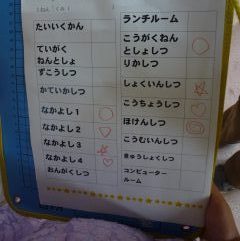 ねん くみ
たいいくかん
ていがく
ねんとしょ
ずこうしつ
かていかしつ
なかよし1
なかよし2
なかよし3
なかよし4
おんがくしつ
ランチルーム
こうがくねん
としょしつ
りかしつ
しょくいんしつ
こうちょうしつ
ほけんしつ
こうむいんしつ
きゅうしょくしつ
コンピューター
ルーム